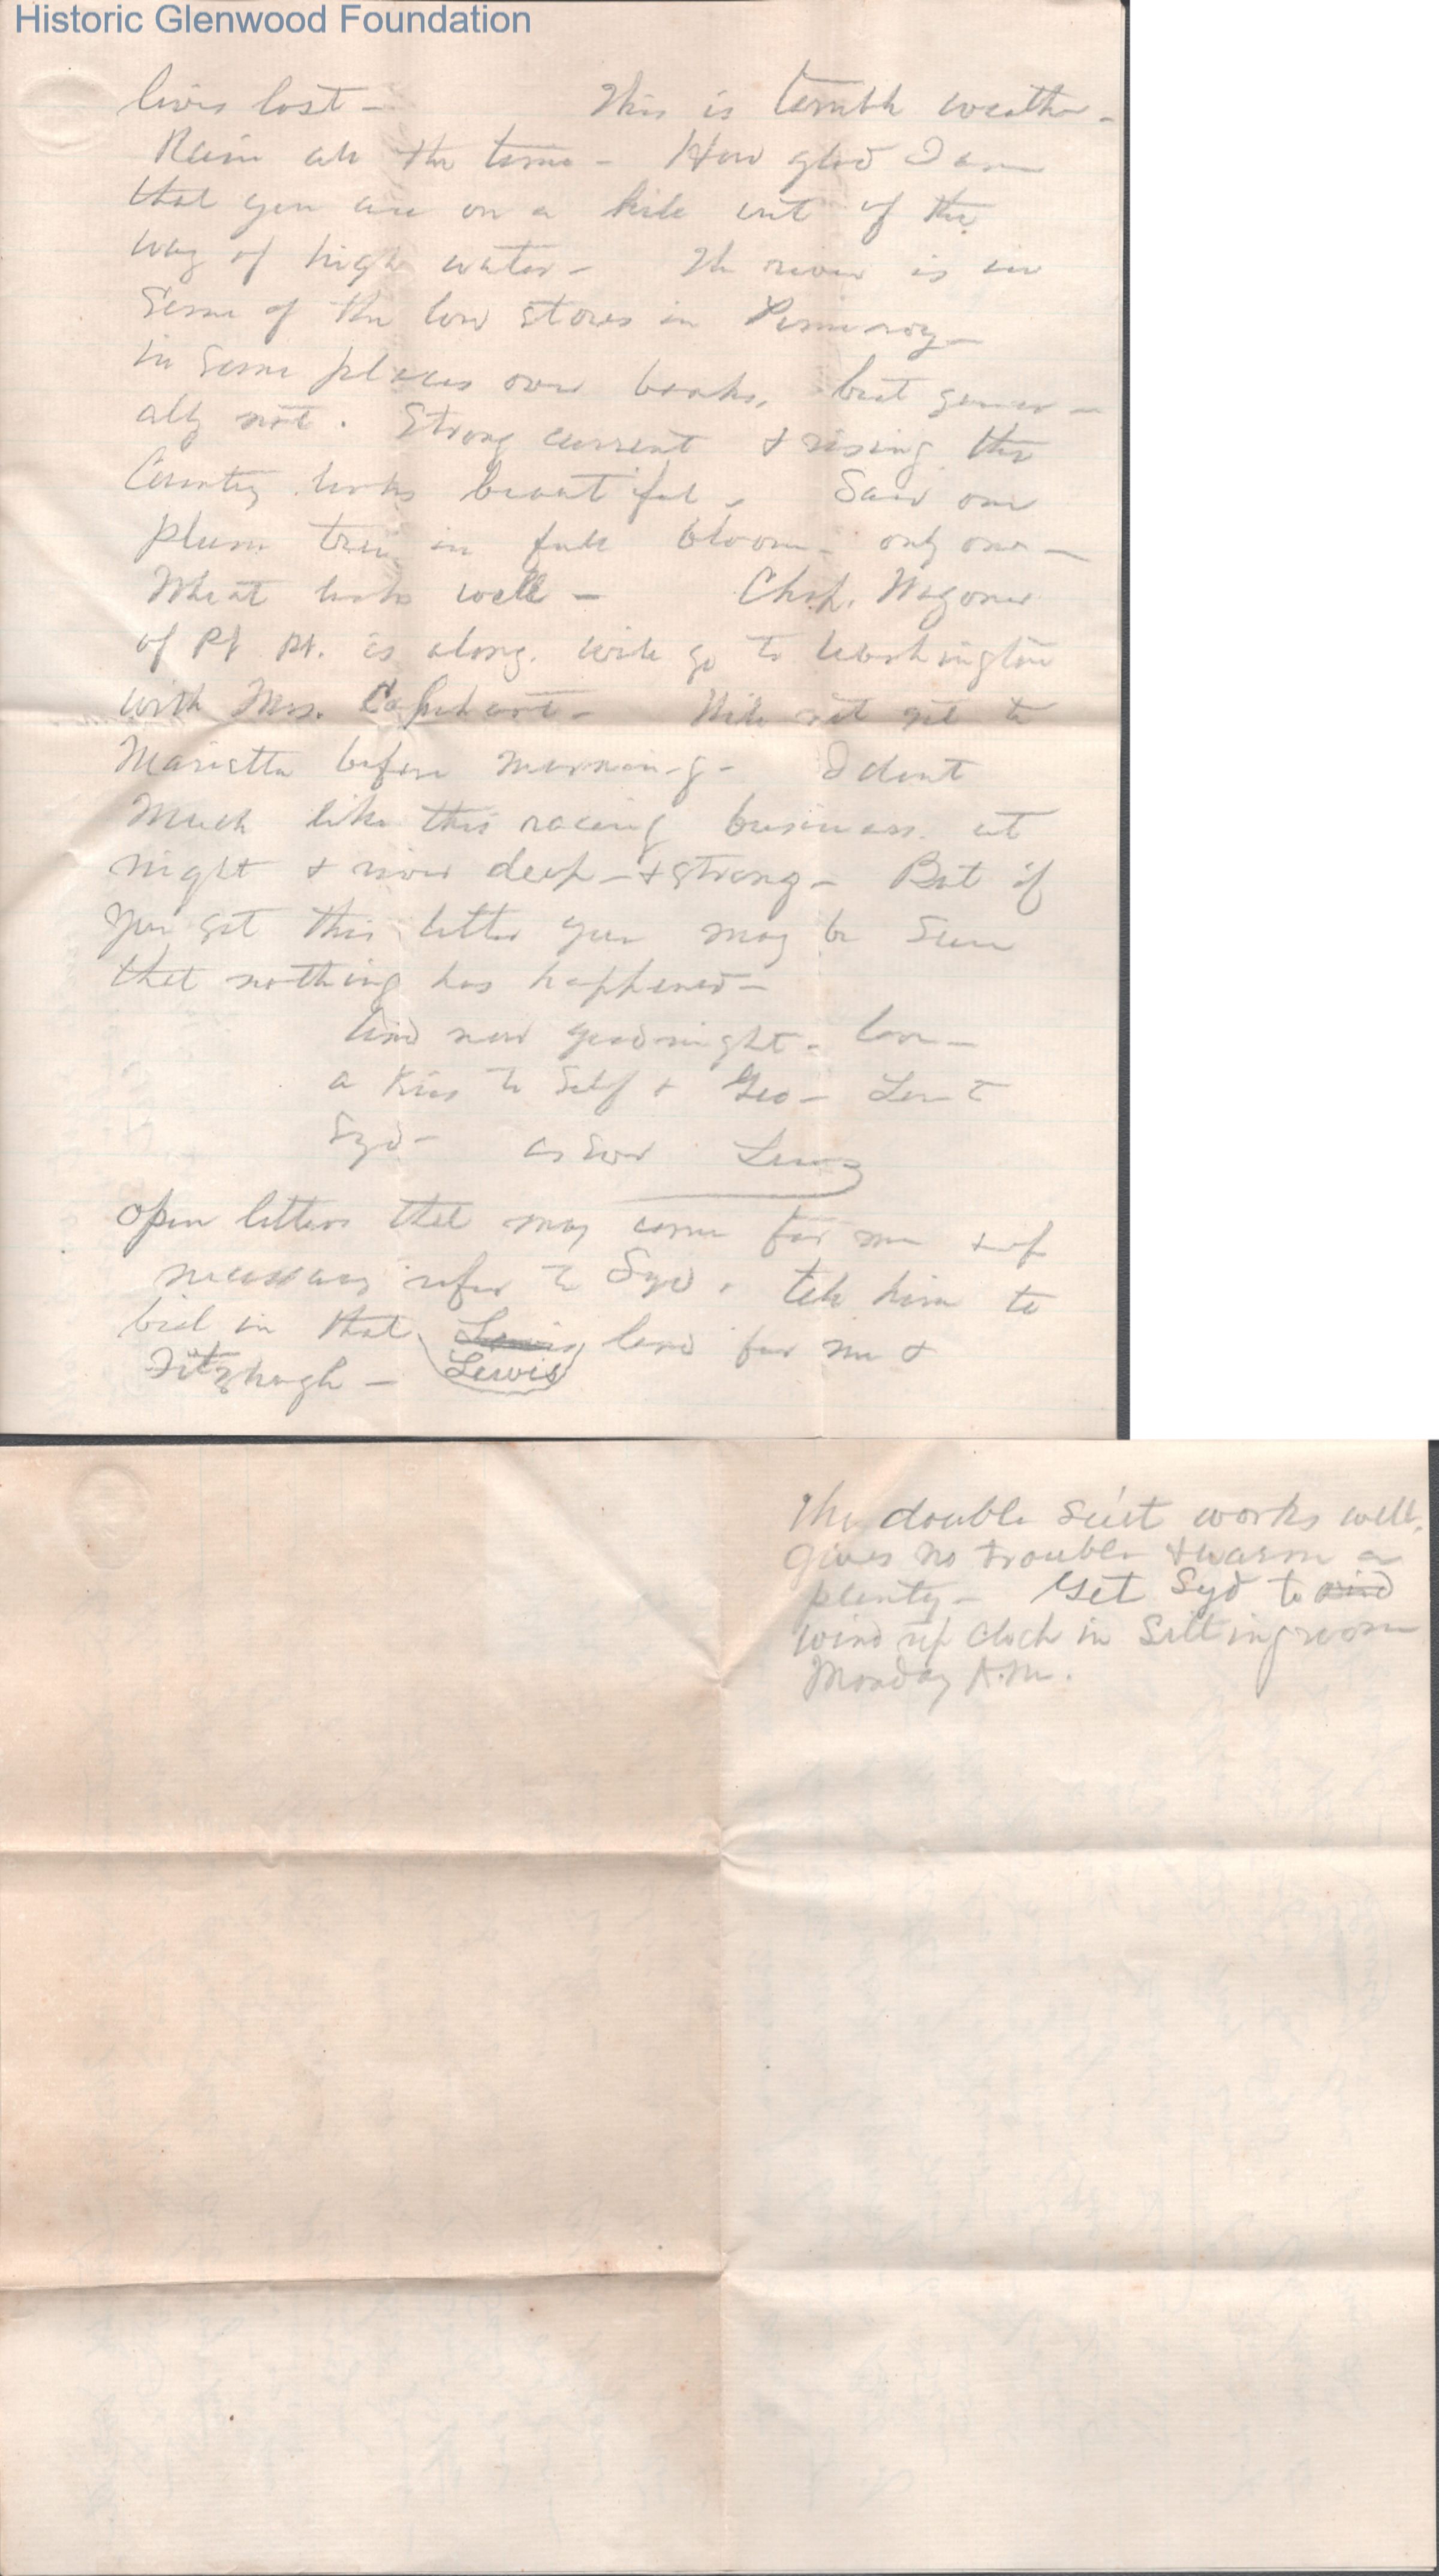 Historic Glenwood Foundation
lives lost - This is terrible weather -
Rain all the time - How glad I am
that you are on a hill out of the
way of high water - The river is in
some of the low stores in Pomeroy -
in some places over banks, but gener -
ally not. Strong current & rising. the
Country looks beautiful. Saw one
plum tree in full bloom - only one -
Wheat looks well - Chas. Wagoner
of Pt Pt. is along. will go to Washington
with Mrs. Capehart - Will not get to
Marietta before morning - I dont
much like this racing business at
night & river deep - & strong - But if
you get this letter you may be sure
that nothing has happened -
And now goodnight - love -
a Kiss to Self & Geo - Love to
Syd - as ever Lewis
open letters that may come for me & if
necessary refer to Syd. tell him to
bid in that Lewis land for me &
Lewis
Fitzhugh -
The double suit works well,
gives no trouble & warm a
plenty - Get Syd to wind
wind up clock in Sitting room
Monday A.M.